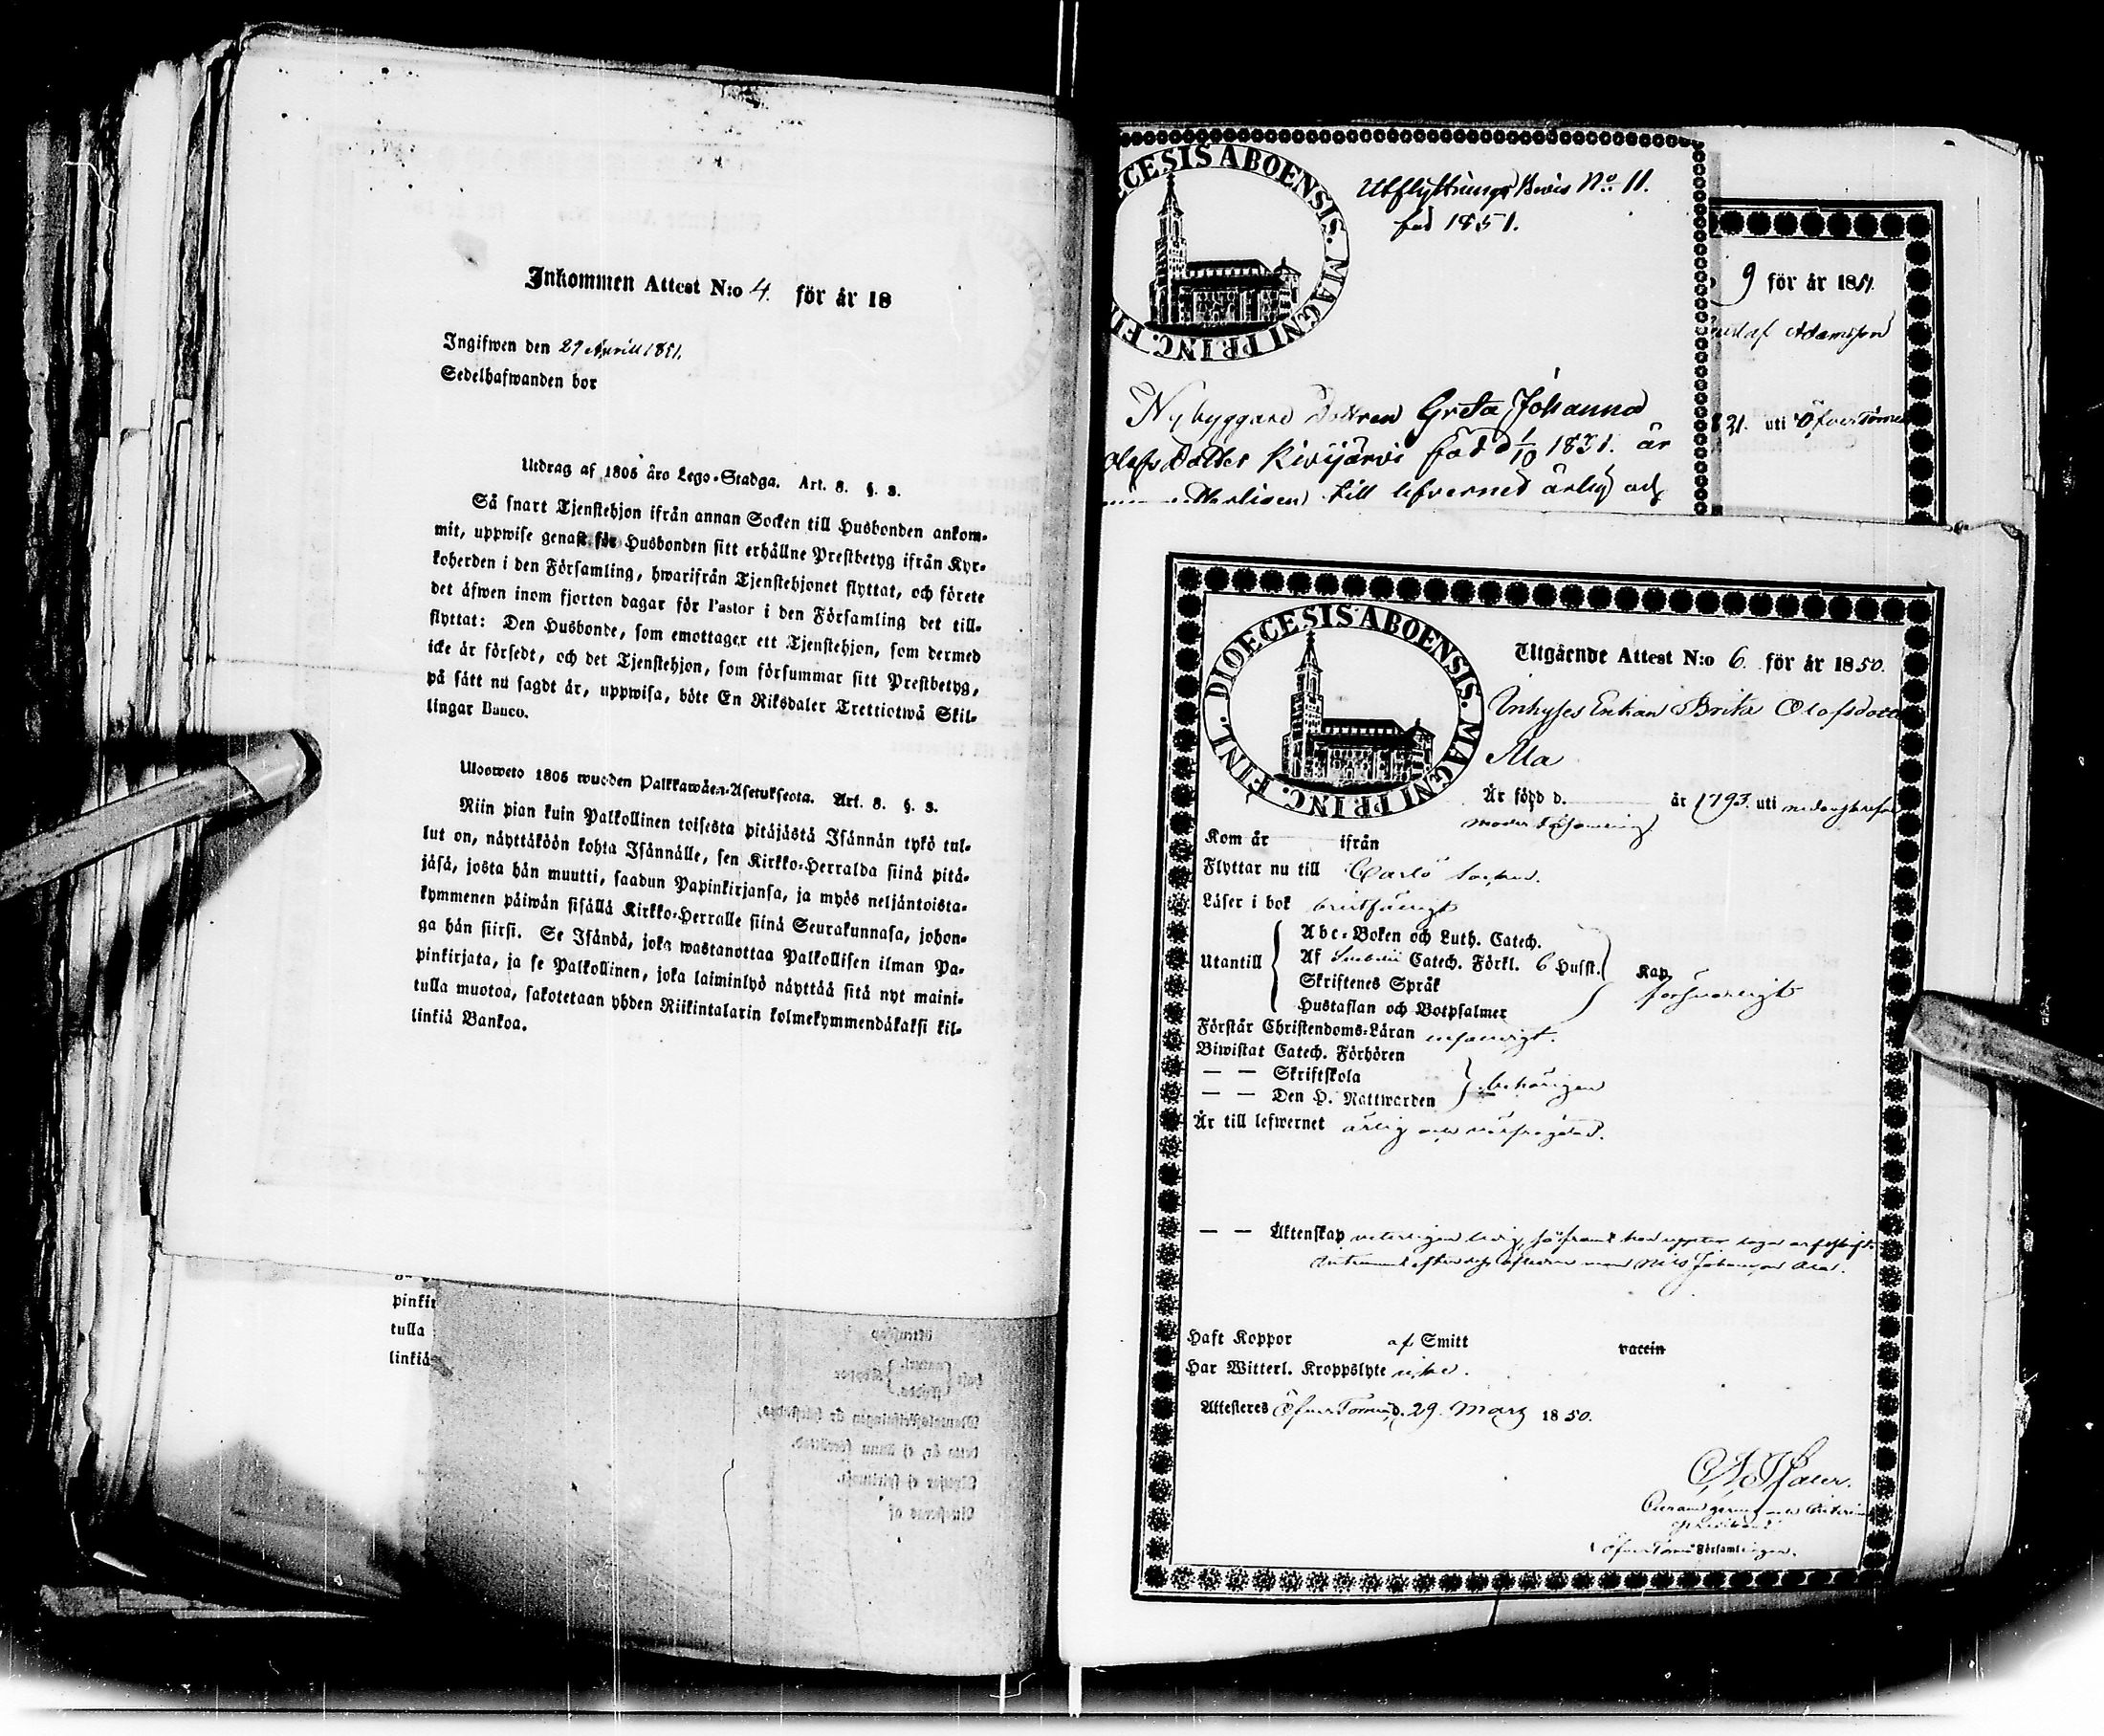 Inkommen Attest N:o 4. för år 18
Ingifwen den 29 Aprill 1851.
Sedelhafwanden bor
Utdrag af 1805 års Lego-Stadga. Art. 8. §. 3.
Så snart Tjenstehjon ifrån annan Socken till Husbonden ankom-
mit, uppwise genast för Husbonden sitt erhållne Prestbetyg ifrån Kyr-
koherden i den Församling, hwarifrån Tjenstehjonet flyttat, och förete
det äfwen inom fjorton dagar för Pastor i den Församling det till-
flyttat: Den Husbonde, som emottager ett Tjenstehjon, som dermed
icke är försedt, och det Tjenstehjon, som försummar sitt Prestbetyg,
på sätt nu sagdt är, uppwisa, böte En Riksdaler Trettiotwå Skil-
lingar Banco.
Uloosweto 1805 wuoden Palkkawäen-Asetuksesta. Art. 8. §. 3.
Niin pian kuin Palkollinen toisesta pitäjästä Isännän tykö tul-
lut on, näyttäköön kohta Isännälle, sen Kirkko-Herralda siinä pitä-
jäsä, josta hän muutti, saadun Papinkirjansa, ja myös neljäntoista-
kymmenen päiwän sisällä Kirkko-Herralle siinä Seurakunnasa, johon-
ga hän siirsi. Se Isändä, joka wastanottaa Palkollisen ilman Pa-
pinkirjata, ja se Palkollinen, joka laiminlyö näyttää sitä nyt maini-
tulla muotoa, sakotetaan yhden Riikintalarin kolmekymmendäkaksi kil-
linkiä Bankoa.
pinkir
tulla
linkiä
CESIS ABOENSIS. MAGNI PRINC. FI
Utflyttnings Bevis No. 11.
för 1851.
Nybyggare Dottren Greta Johanna
Olofs Dotter Kivijärvi född d 1/10 1831. är
till lefvernet ärlig och
9 för år 1851.
Adamsson
21. uti Öfver Torne
DIOECESIS ABOENSIS. MAGNI PRINC. FINL.
Utgående Attest N:o 6. för år 1850.
Inhyses Enkan Brita Olofsdotter
Ala
Är född d. år 1793. uti
moder Församling
Kom år ifrån
Flyttar nu till Carlö Socken.
Läser i bok
Utantill
Abc-Boken och Luth. Catech.
Af Svebelii Catech. Förkl. 6 Husst. Kap.
Skriftenes Språk försvarligt
Hustaflan och Botpsalmer
Förstår Christendoms-Läran
Biwistat Catech. Förhören
— — Skriftskola
— — Den H. Nattwarden behörigen
Är till lefwernet ärlig och
— — Äktenskap veterligen ledig, såframt hon
man Nils Johansson Ala.
Haft Koppor af Smitt vaccin
Har Witterl. Kroppslyte icke.
Attesteras Öfver Torneå d. 29. Mars 1850.
Församlingen.